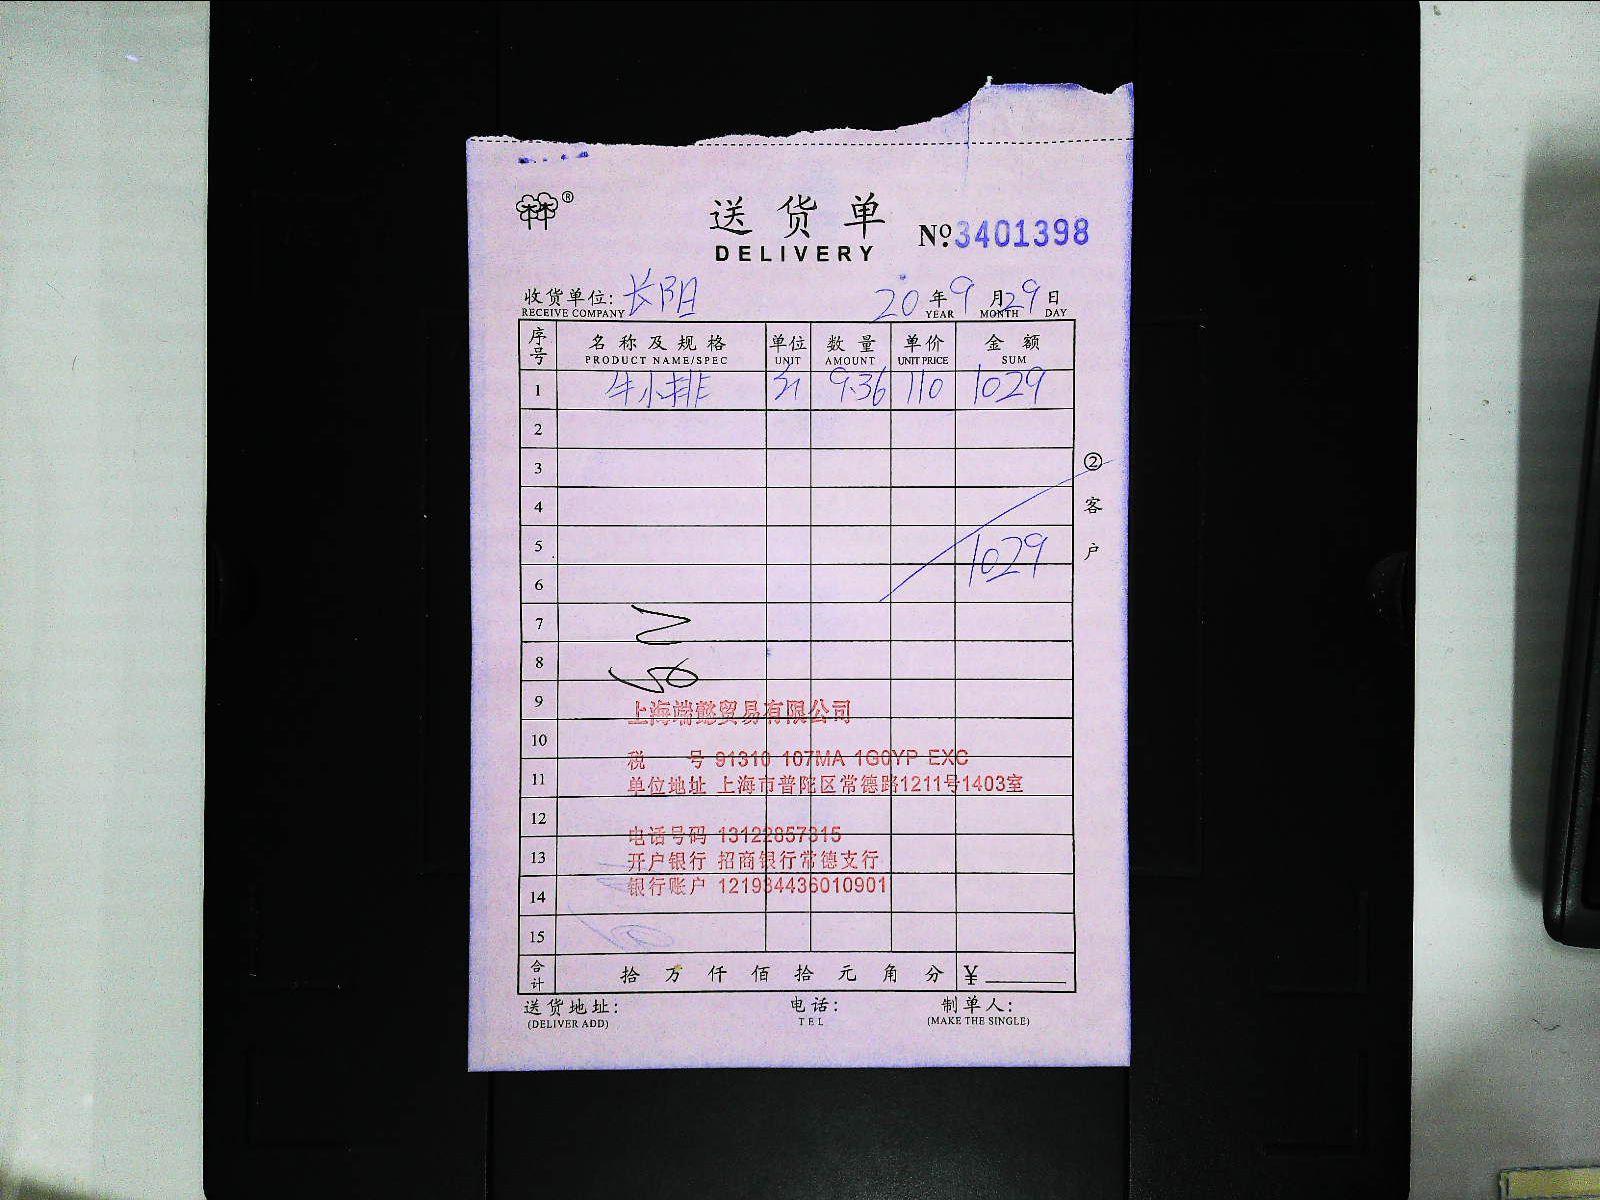 ®
送货单
DELIVERY
Nº:3401398
收货单位:长阳 20年9月29日
RECEIVE COMPANY YEAR MONTH DAY
序号 名称及规格 单位 数量 单价 金额
PRODUCT NAME/SPEC UNIT AMOUNT UNIT PRICE SUM
1 牛小排 9.36 110 1029
2
3
4
5 1029
6
7
8
9
10
11
12
13
14
15
②客户
上海端懿贸易有限公司
税 号 91310 107MA 1G0YP EXC
单位地址 上海市普陀区常德路1211号1403室
电话号码 13122857315
开户银行 招商银行常德支行
银行账户 121934436010901
合计 拾万仟佰拾元角分 ¥
送货地址: 电话: 制单人:
(DELIVER ADD) TEL (MAKE THE SINGLE)